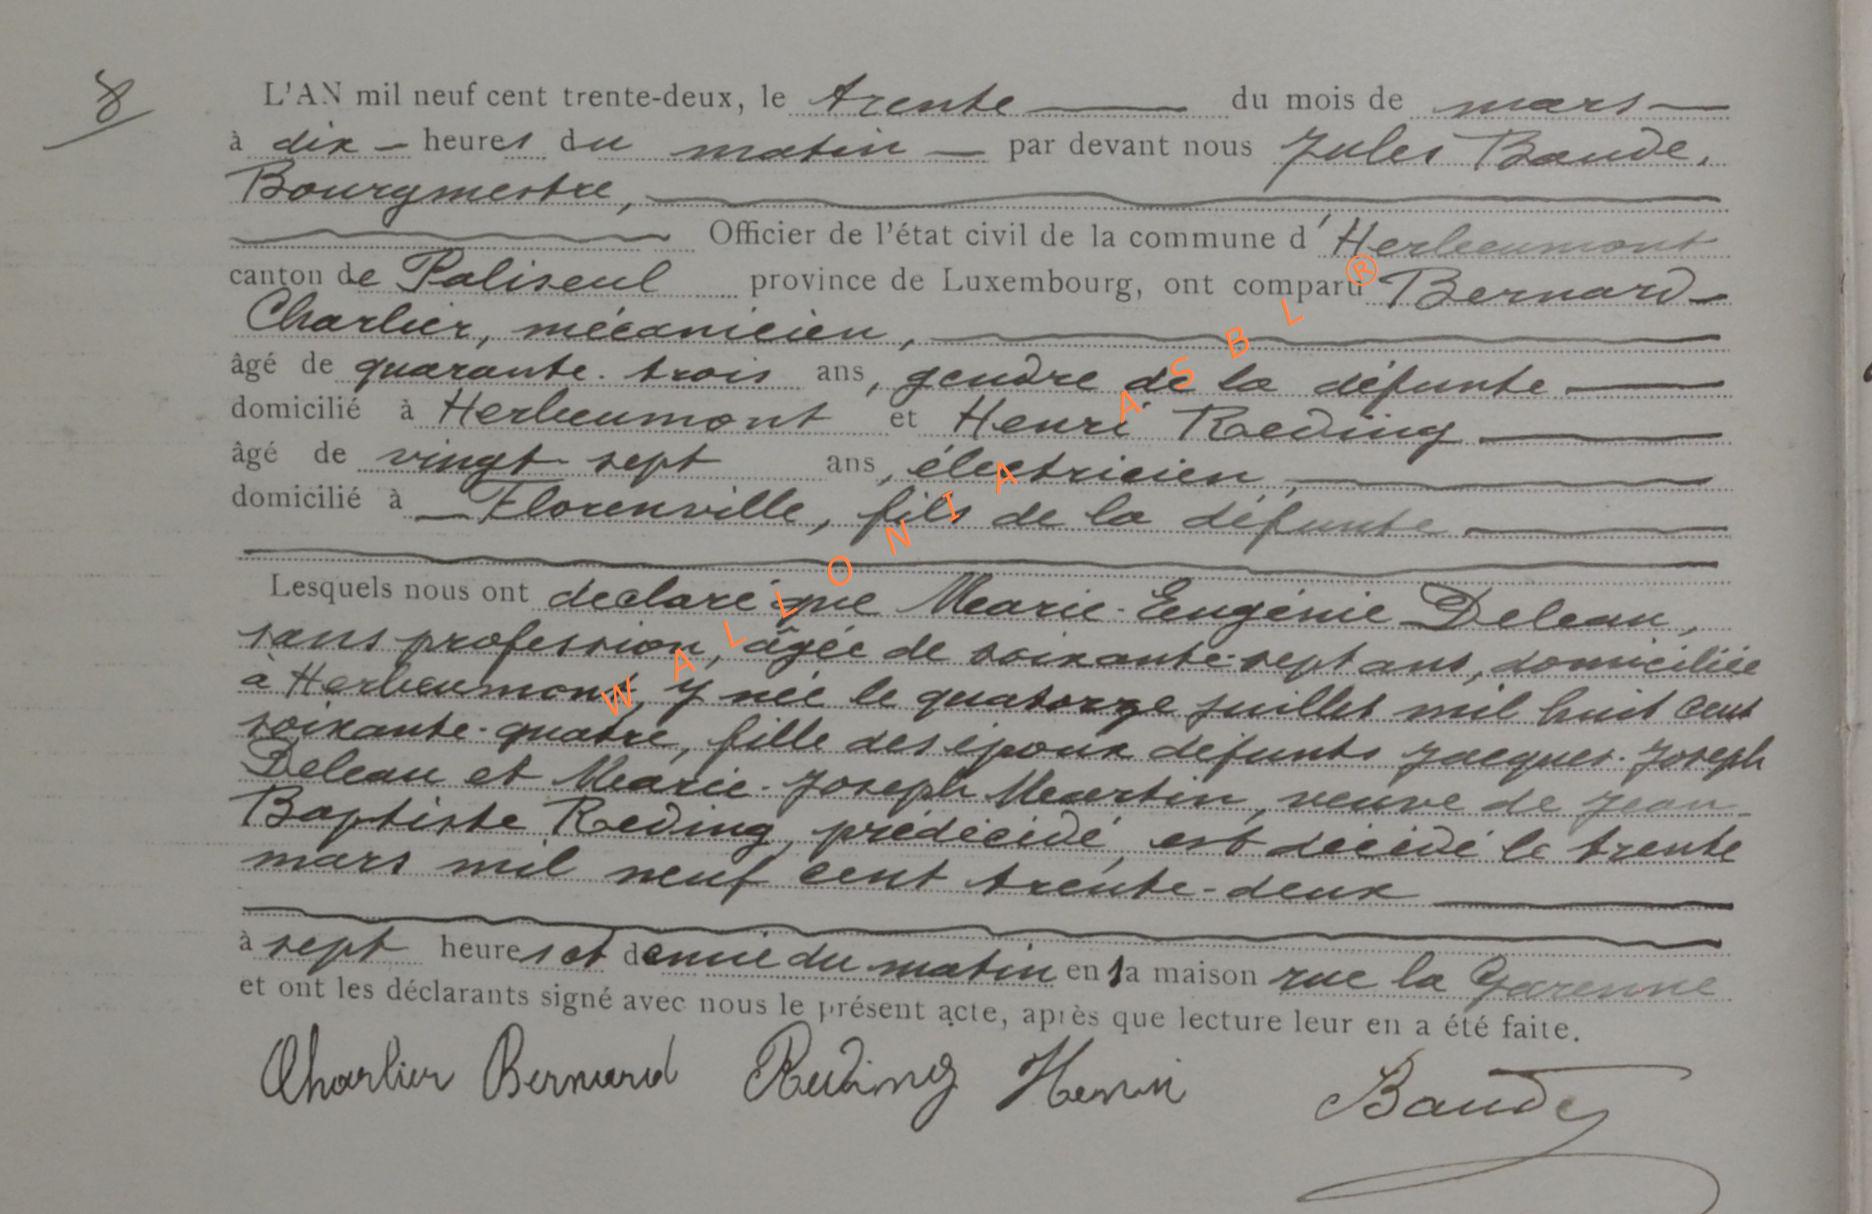 8
L'AN mil neuf cent trente-deux, le trente du mois de mars
à dix heures du matin par devant nous Jules Baude,
Bourgmestre,
Officier de l'état civil de la commune d'Herbeumont
canton de Paliseul province de Luxembourg, ont comparu Bernard
Charlier, mécanicien,
âgé de quarante-trois ans, gendre de la défunte
domicilié à Herbeumont et Henri Reding
âgé de vingt-sept ans, électricien,
domicilié à Florenville, fils de la défunte
Lesquels nous ont declaré que Marie-Eugénie Deleau,
sans profession, âgée de soixante-sept ans, domiciliée
à Herbeumont, y née le quatorze juillet mil huit cent
soixante-quatre, fille des époux défunts Jacques-Joseph
Deleau et Marie-Joseph Martin, veuve de Jean-
Baptiste Reding, prédécédé, est décédé le trente
mars mil neuf cent trente-deux
à sept heures et demie du matin en sa maison rue la Garenne
et ont les déclarants signé avec nous le présent acte, après que lecture leur en a été faite.
Charlier Bernard Reding Henri Baude
WALLONIA ASBL ®